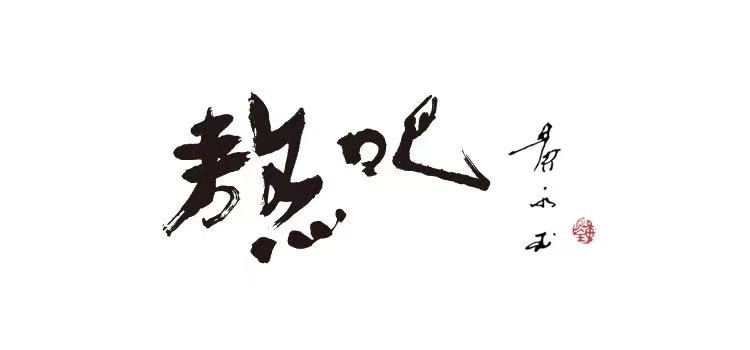 熬吧
黄永玉